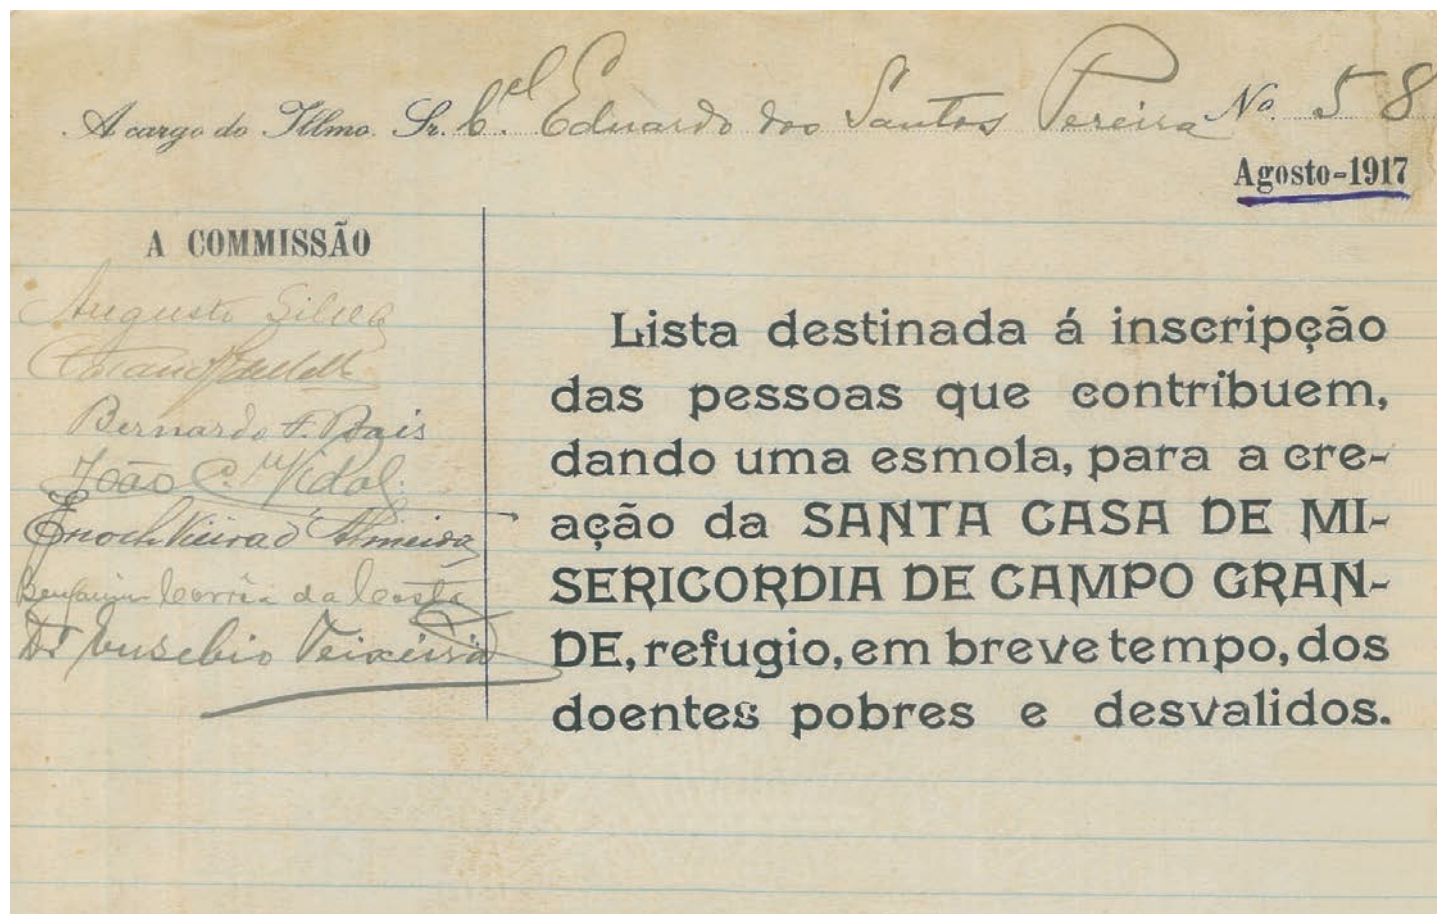 A cargo do Illmo. Sr. Cel. Eduardo dos Santos Pereira No. 58
Agosto-1917
A COMMISSÃO
Augusto Silva
Bernardo F. Bais
João C. Vidal
Enoch Vieira d'Almeida
Benjamin Corrêa da Costa
Dr Eusebio Teixeira
Lista destinada á inscripção
das pessoas que contribuem,
dando uma esmola, para a cre-
ação da SANTA CASA DE MI-
SERICORDIA DE CAMPO GRAN-
DE, refugio, em breve tempo, dos
doentes pobres e desvalidos.